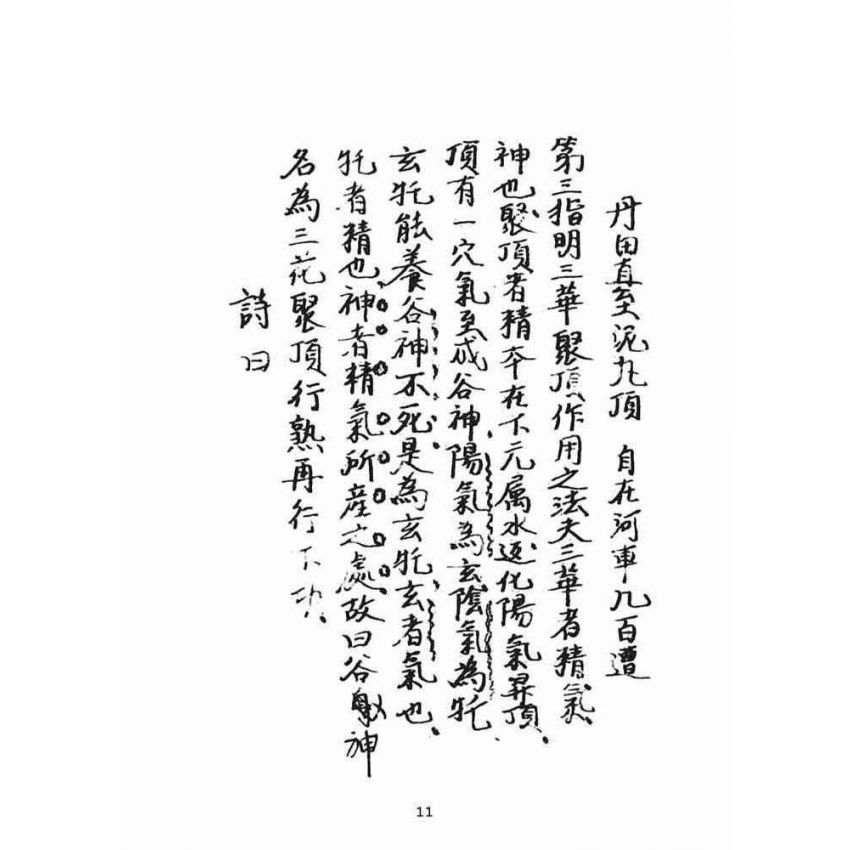 丹田直至泥丸頂 自在河車几百遭
第三指明三華聚頂作用之法夫三華者精氣
神也聚頂者精本在下元属水返化陽氣昇頂
頂有一穴氣至成谷神陽氣為玄陰氣為牝
玄牝能養谷神不死是為玄牝玄者氣也
牝者精也神者精氣所産之處故曰谷神
名為三花聚頂行熟再行下功
詩曰
11